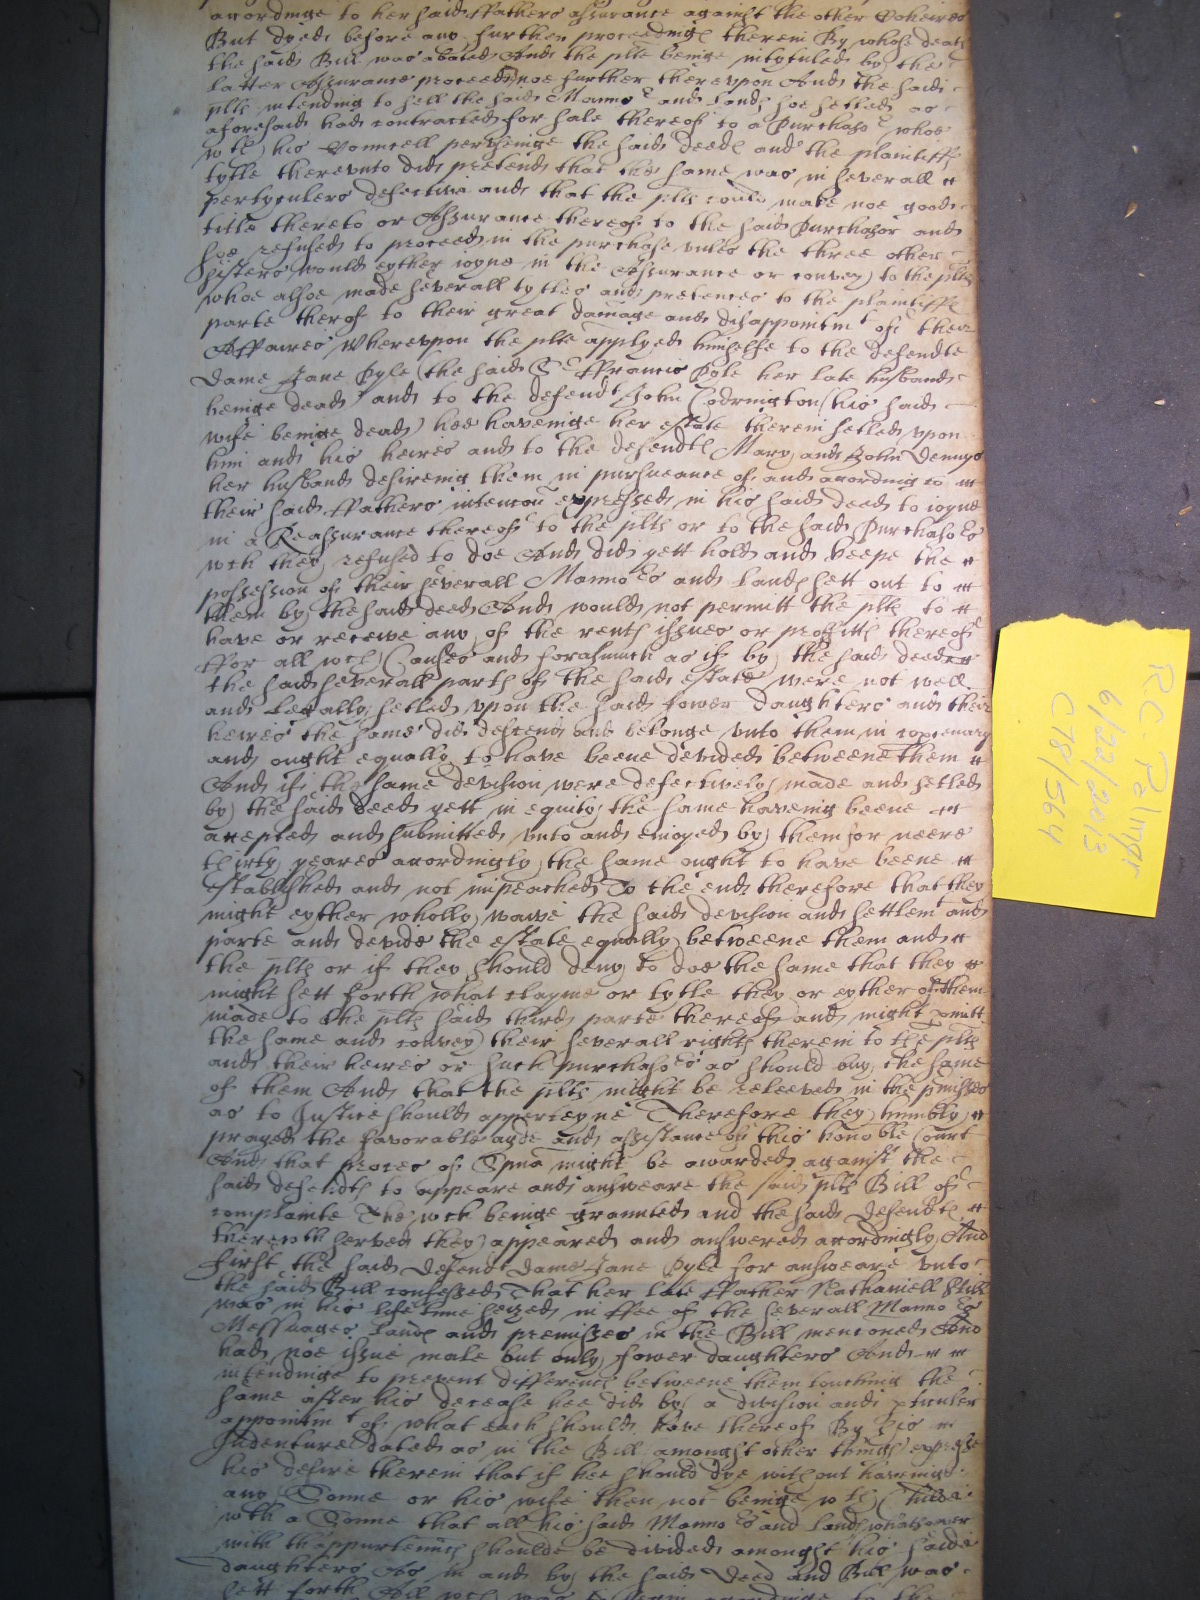 acordinge to her said ffathers assurance against the other Coheires
But dyed before any further proceedings therein By whose death
the said Bill was abated And the plts beinge intytuled by the
latter Assurance proceeded noe further therevpon And the said
plts intending to sell the said Manno^r and lands soe setled as
aforesaid had contracted for sale thereof to a Purchaso^r whoe
wth his Councell perusinge the said deeds and the plaintiffs
tytle therevnto did pretend that the same was in severall
pertyculers defective and that the plts could make noe good
title thereto or Assurance thereof to the said Purchasor and
soe refused to proceed in the purchase vnles the three other
sisters would eyther ioyne in the Assurance or convey to the plts
whoe alsoe made severall tytles and pretences to the plaintiffs
parte therof to their great damage and disappointm^t of their
Affaires Wherevpon the plts applyed himselfe to the defendte
Dame Jane Pyle (the said S^r ffrancis Pyle her late husband
beinge dead) and to the defend^t John Codrington (his said
wife beinge dead) hee haveinge her estate therein setled vpon
him and his heires and to the defendts Mary and John Dennys
her husband desireing them in pursueance of and acording to
their said ffathers intencon expressed in his said deed to ioyne
in a Reassurance thereof to the plts or to the said Purchaso^rs
wch they refused to doe And did yett hold and keepe the
possession of their severall Manno^rs and lands sett out to
them by the said deed And would not permitt the plts to
have or receive any of the rents issues or proffitts thereof
ffor all wch Causes and forasmuch as if by the said deed
the said severall parts of the said estate were not well
and legally setled vpon the said fower daughters and their
heires the same did descend and belonge vnto them in copcenary
and ought equally to have beene devided betweene them
And if the same devision were defectively made and setled
by the said deed yett in equity the same haveing beene
accepted and submitted vnto and enioyed by them for neere
thirty yeares acordingly the same ought to have beene
Established and not impeached To the end therefore that they
might eyther wholly waive the said devision and settlem^t and
parte and devide the estate equally betweene them and
the plts or if they should deny to doe the same that they
might sett forth what clayme or tytle they or eyther of them
made to the plts said third parte thereof and might pmitt
the same and convey their severall rights therein to the plts
and their heires or such purchaso^rs as should buy the same
of them And that the plts might be releeved in the pmisses
as to Justice should apperteyne Therefore they humbly
prayed the favorable ayde and assistance of this hono^ble Court
And that proces of Spna might be awarded against the
said defendts to appeare and answeare the said plts Bill of
complainte The wch beinge graunted and the said defendts
therewth served they appeared and answered acordingly And
first the said defend^t Dame Jane Pyle for answeare vnto
the said Bill confessed That her late ffather Nathaniell Still
was in his life time seized in ffee of the severall Manno^rs
Messuages lands and premisses in the Bill menconed And
had noe issue male but only fower daughters And
intendinge to prevent difference betweene them touching the
same after his decease hee did by a division and pticuler
appointm^t of what each should have thereof By his
Indenture dated as in the Bill amongst other things expresse
his desire therein that if hee should dye without haveinge
any Sonne or his wife then not beinge wth Childe
wth a Sonne that all his said Manno^rs and lands whatsoever
with thappurtenncs should be divided amongst his said
daughters As in and by the said Deed and Bill was
sett forth All wch was acordinge to the
R.C. Palmer
6/22/2013
C78/564